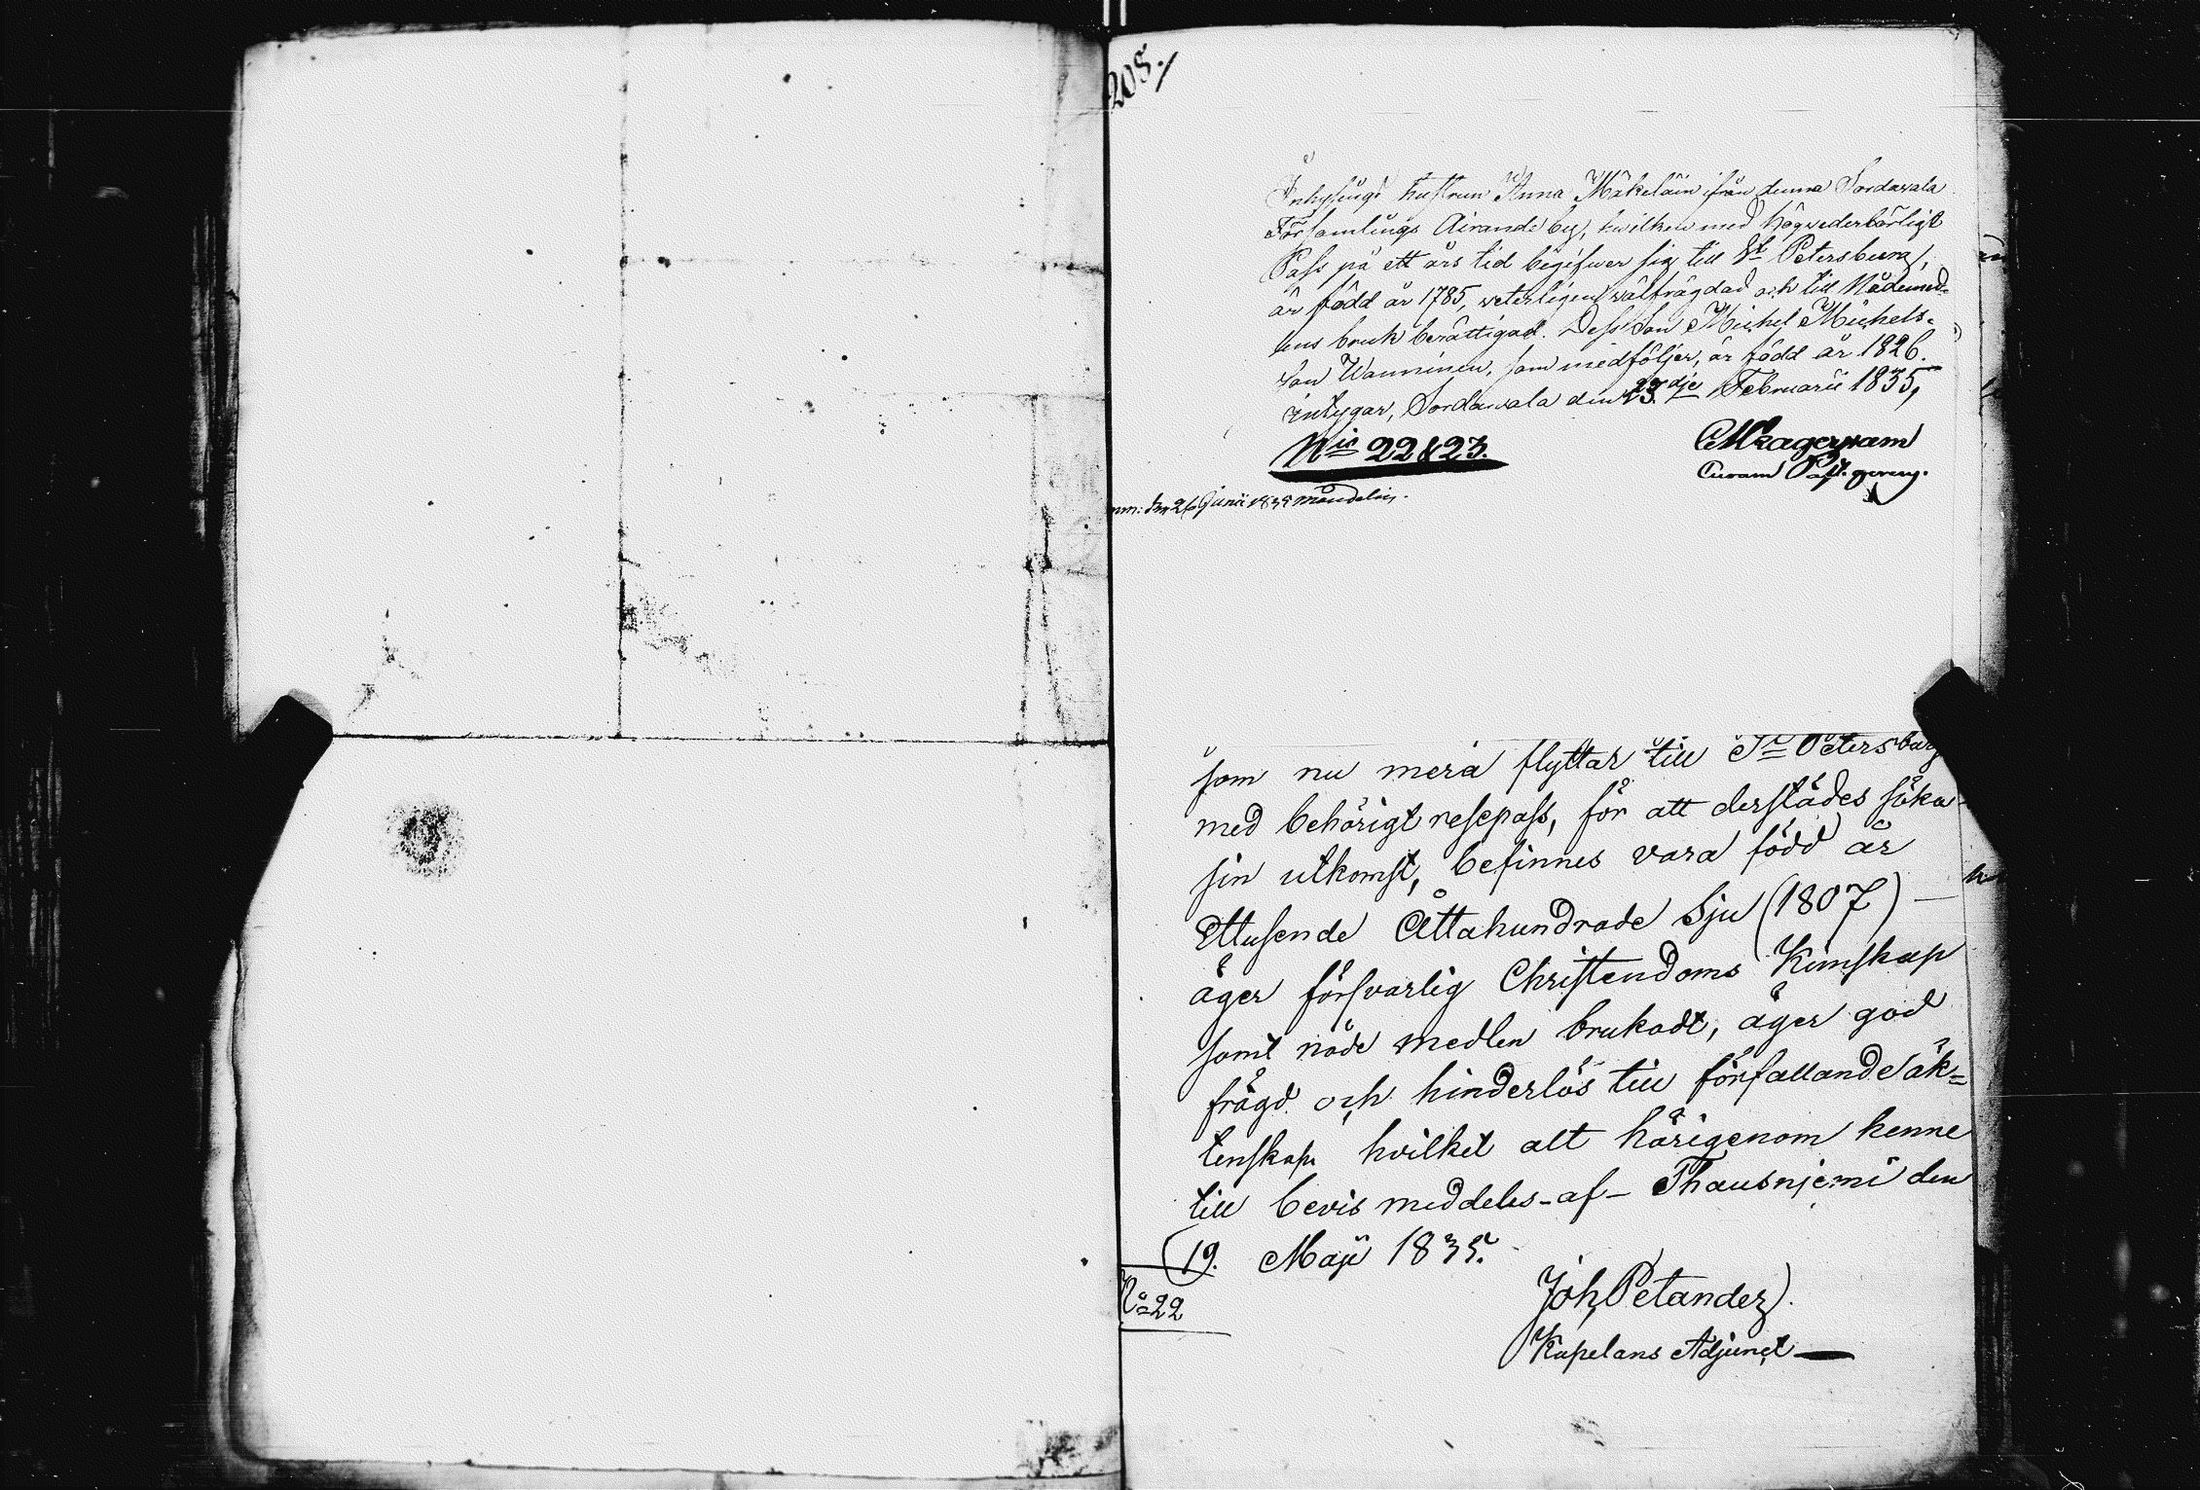 208./
Inhysings hustrun Anna Mäkeläin ifrån denna Sordavala
Församlings Airande by, hwilken med högwederbörligt
Pass på ett års tid begifwer sig till St Petersburg,
är född år 1785, weterligen wälfrägdad och till Nådemed-
lens bruk berättigad. Dess Son Michel Michels-
son Wanninen, som medföljer, är född år 1826.
intygar, Sordawala den 23dje Februarii 1835,
Nis 22 & 23.
Curam Past. gerens.
den 26 Junii 1835
som nu mera flyttar till St Petersburg
med behörigt resepass, för att derstädes söka
sin utkomst, befinnes vara född år
Ettusende Åttahundrade Sju (1807) —
äger försvarlig Christendoms Kunskap
samt nåde medlen brukadt, äger god
frägd och hinderlös till förfallande äk=
tenskap hvilket alt härigenom henne
till bevis meddeles - af - Thausnjemi den
19. Maji 1835.
No 22
Joh Petander
Kapelans Adjunct —